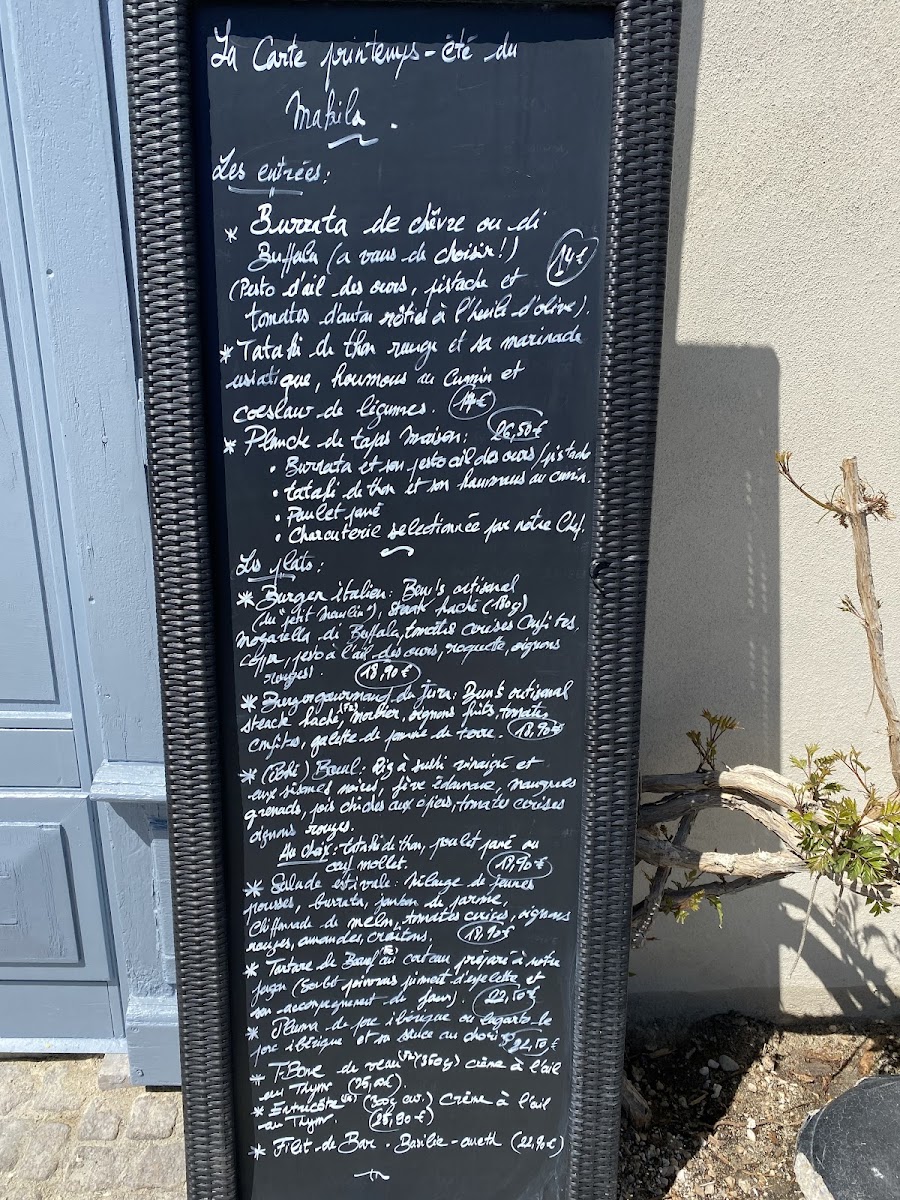 La Carte printemps-été du
Makila.
Les entrées:
* Burrata de chèvre ou di
Buffala (a vous de choisir!)
14€
(Pesto d'ail des ours, pistache et
tomates d'antan rôties à l'huile d'olive).
* Tataki de thon rouge et sa marinade
asiatique, houmous au Cumin et
coeslaw de légumes.
* Planche de tapas maison: 26,50€
• Burrata et son pesto ail des ours/pistache
• tataki de thon et son houmous au cumin.
• Poulet pané
• Charcuterie selectionnée par notre Chef.
Les plats:
* Burger italien: Bun's artisanal
(du "petit moulin"), steak haché (180g)
Mozarella di Buffala, tomates cerises Confites,
Copa, pesto à l'ail des ours, roquette, oignons
rouges). 18,90€
* Burger gourmand du Jura: Bun's artisanal
steack haché, morbier, oignons frits, tomates
confites, galette de pomme de terre. 18,90€
* (Poké) Bowl: Riz à sushi vinaigré et
aux sésames noirs, fève édamame, mangues
grenade, pois chiches aux épices, tomates cerises
oignons rouges.
Au choix: tataki de thon, poulet pané ou
oeuf mollet. 18,90€
* Salade estivale: Mélange de jeunes
pousses, burrata, jambon de parme,
Chiffonnade de melon, tomates cerises, oignons
rouges, amandes, croûtons. 18,90€
* Tartare de Boeuf au couteau préparé à notre
façon (Sorbet poivrons piment d'espelette et
son accompagnement du jour).
* Pluma de porc ibérique ou lagarto de
porc ibérique et sa sauce au chorizo
* T-Bone de veau (350g) crème à l'ail
au Thym.
* Entrecôte (300g env.) Crème à l'ail
au Thym.
* Filet de Bar. Basilic-aneth (22,90€)